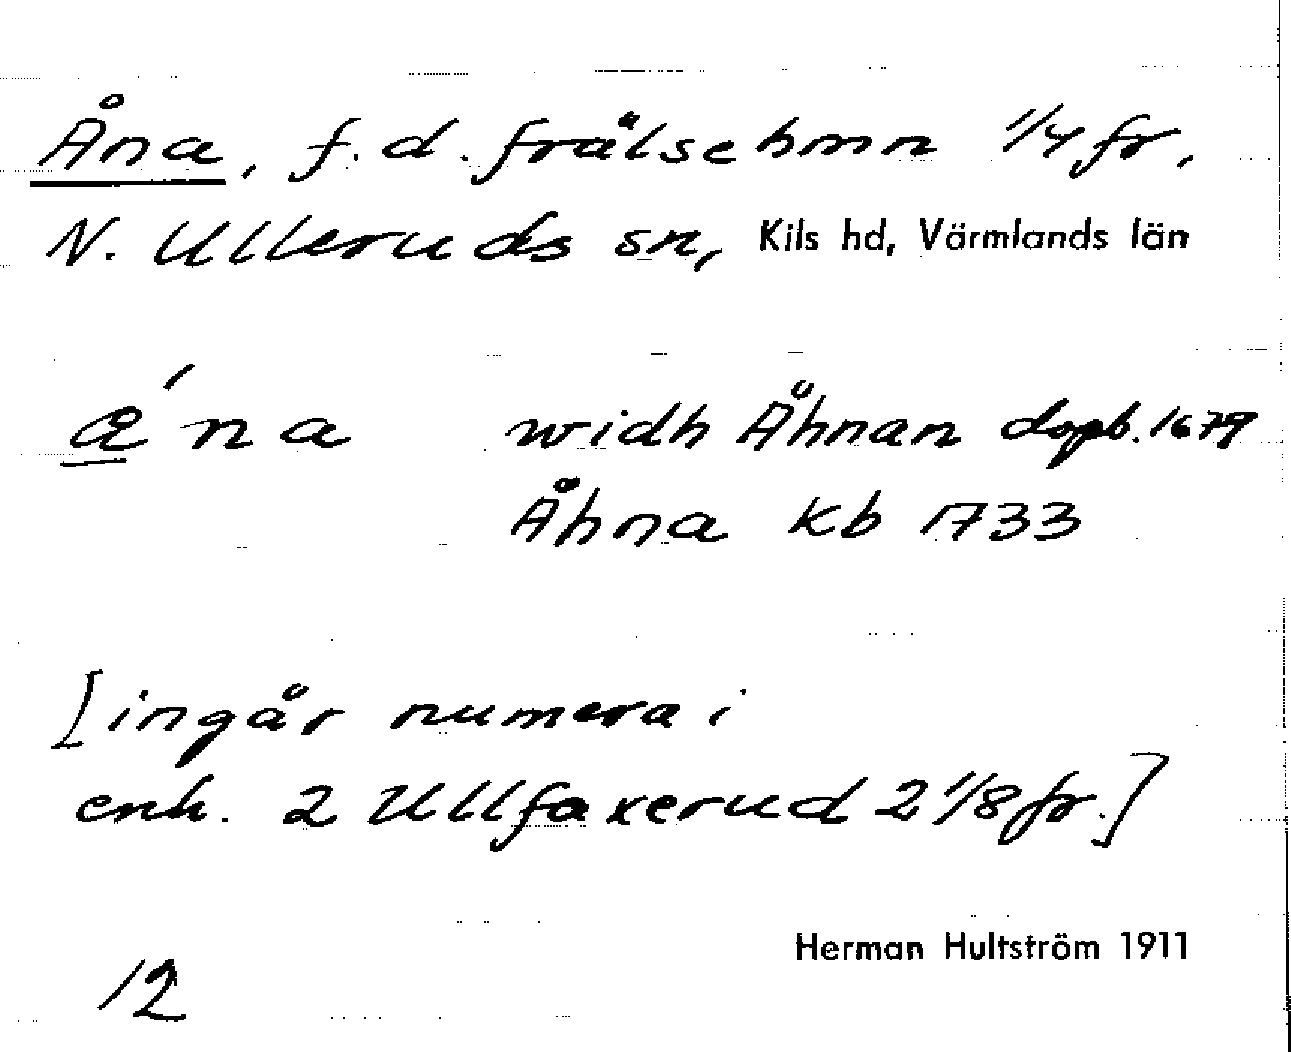 Åna, f.d. frälsehmn 1/4 fr,
N. Ulleruds sn, Kils hd, Värmlands län
a̲ ́na widh Åhnan dopb. 1679
Åhna Kb 1733
[ingår numera i
enh. 2 Ullfaxerud 2 1/8 fr.]
Herman Hultström 1911
12